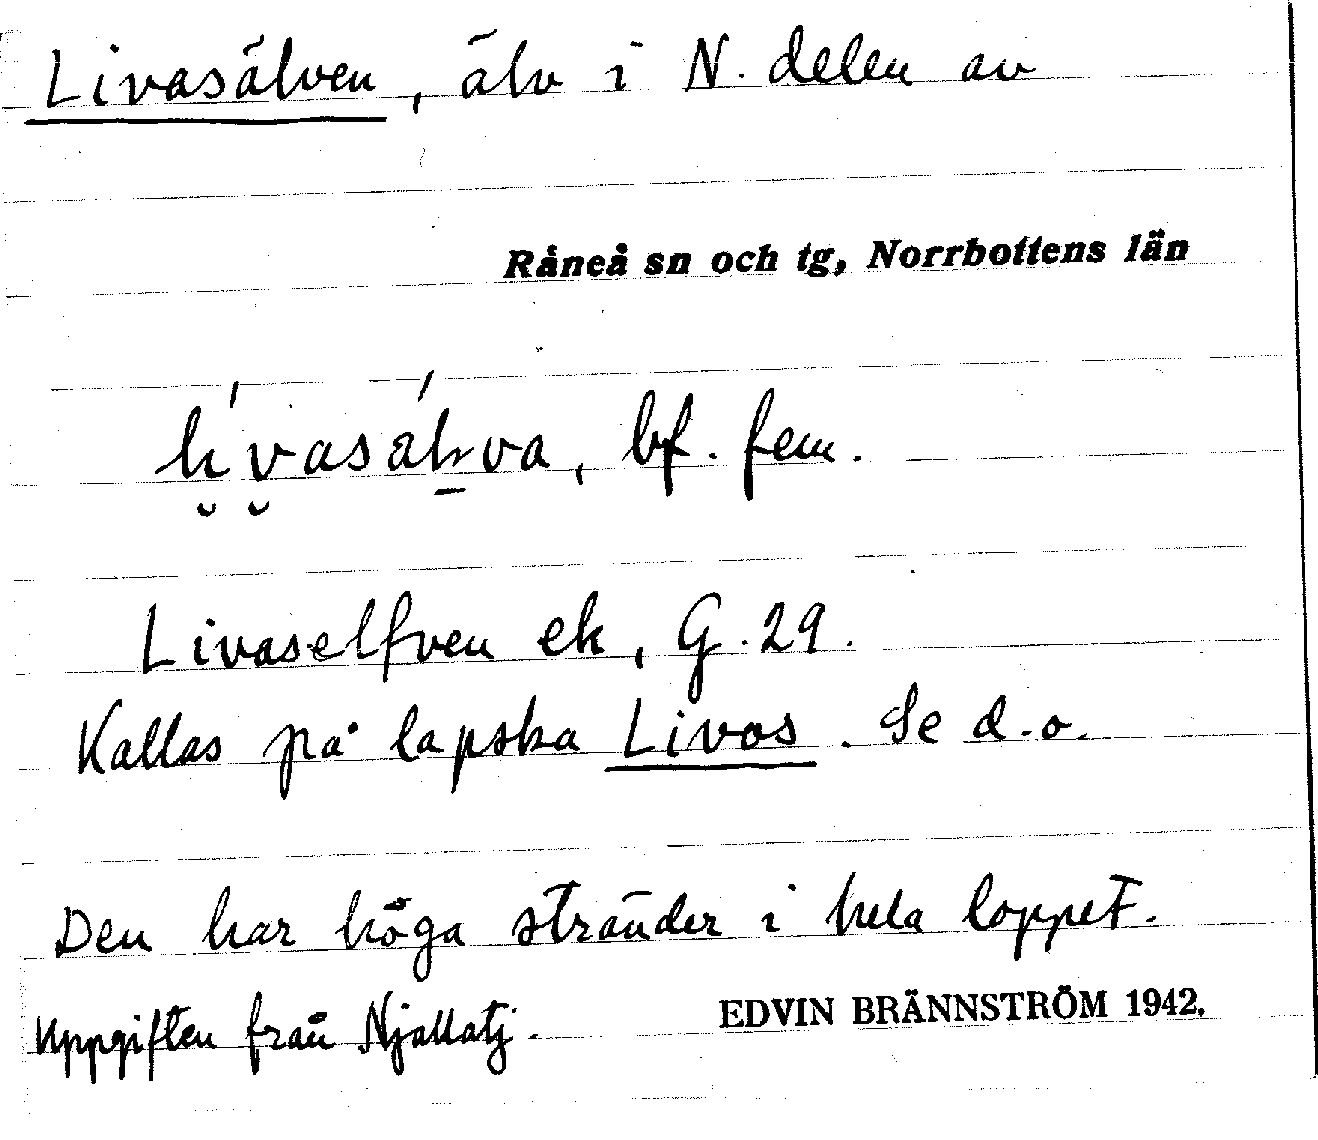 Livasälven, älv i N. delen av
Råneå sn och tg, Norrbottens län
bf. fem.
Livaselfven ek, G. 29.
Kallas på lapska Livos. Se d.o.
Den har höga stränder i hela loppet.
Uppgiften från Njallatj.
EDVIN BRÄNNSTRÖM 1942.